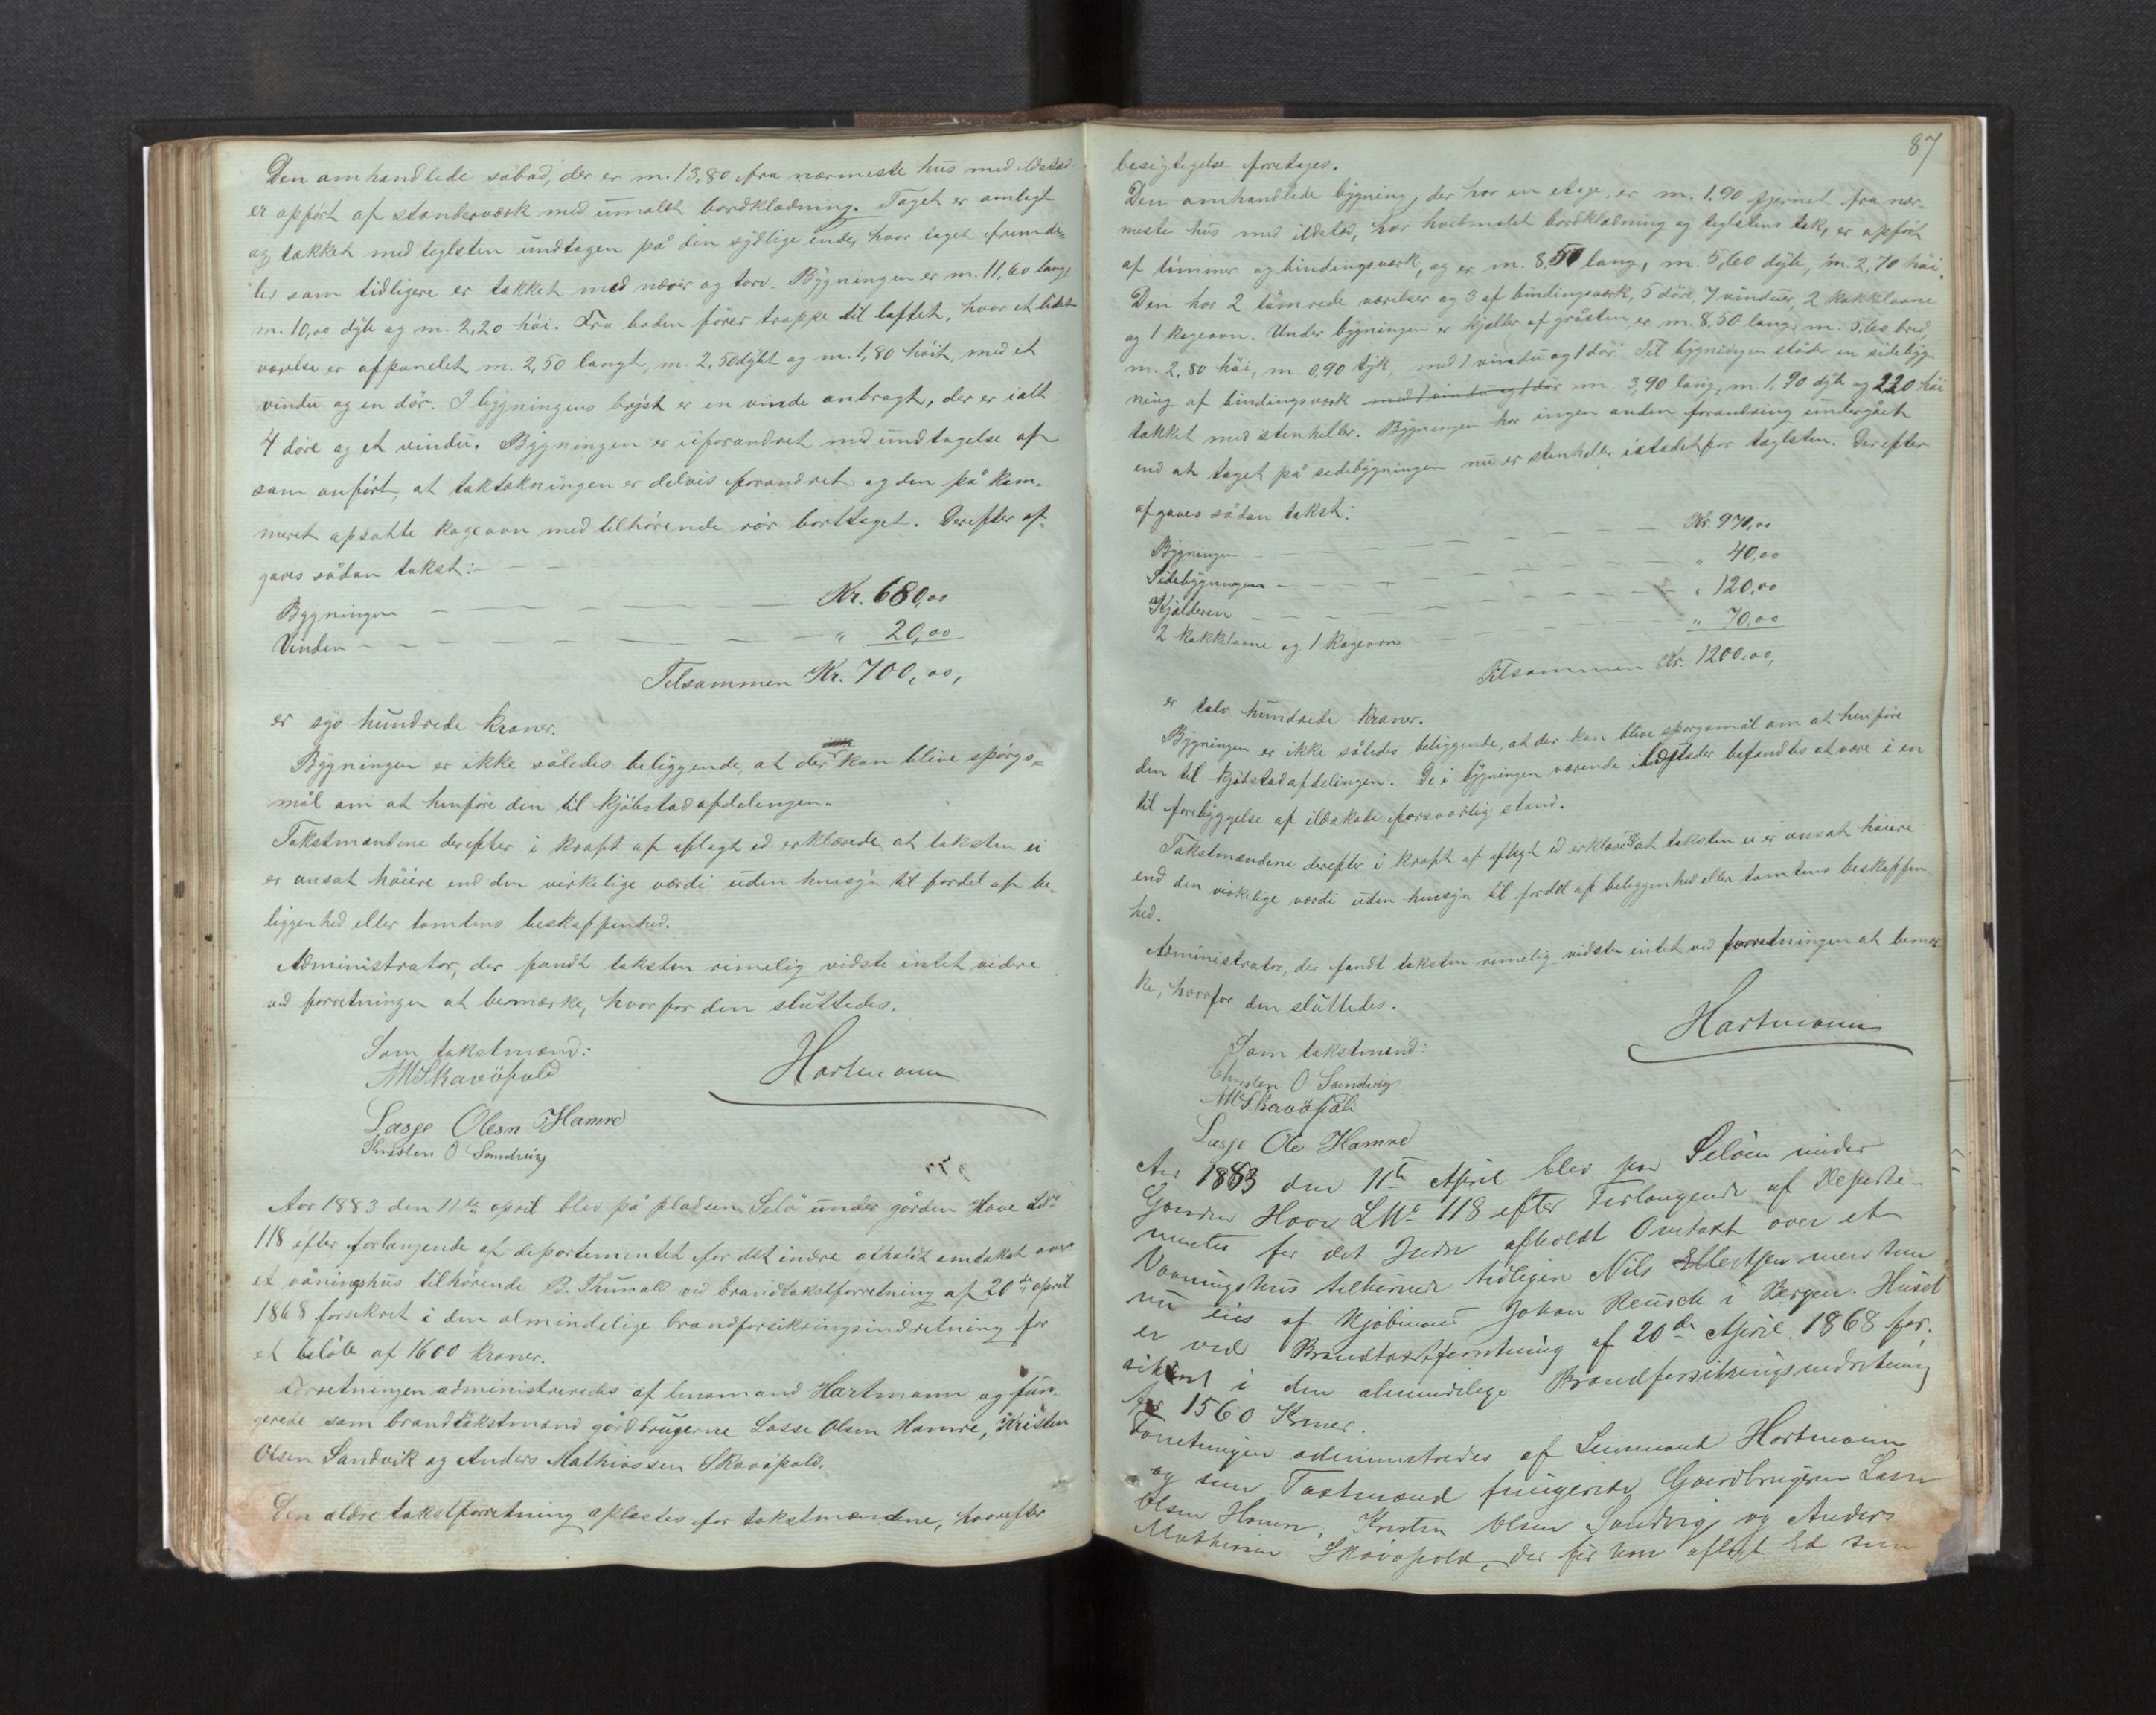 Den omhandlede søbod, der er m. 13,80 fra nærmeste hus med ildsted
er opført af standerværk med umalet bordklædning. Taget er omlagt
og takket med teglsten undtagen på den sydlige ende, hvor taget fremde-
les som tidligere er takket med næver og torv. Bygningen er m. 11,60 lang,
m. 10,00 dyb og m. 2,20 høi. Fra boden fører trappe til loftet, hvor et lidet
værelse er afpanelet m. 2,50 langt, m. 2,50 dybt og m. 1,80 høit, med et
vindu og en dør. I bygningens bryst er en vinde anbragt, der er ialt
4 døre og et vindu. Bygningen er uforandret med undtagelse af
som anført, at taktækningen er delvis forandret og den på kam-
meret opsatte kogeovn med tilhørende rør borttaget. Derefter af-
gaves sådan takst:
Bygningen — — — Kr. 680,00
Vinden — — — " 20,00
Tilsammen Kr. 700,00,
er syv hundrede kroner.
Bygningen er ikke således beliggende, at der kan blive spørgs-
mål om at henføre den til kjøbstadafdelingen.
Takstmændene derefter i kraft af aflagt ed erklærede at taksten ei
er ansat høiere end den virkelige værdi uden hensyn til fordel af be-
liggenhed eller tomtens beskaffenhed.
Administrator, der fandt taksten rimelig vidste intet videre
ved forretningen at bemærke, hvorfor den sluttedes.
Som takstmænd:
AMSkavøpold
Hartmann
Lasse Olesn Hamre
Kristen O Sandvig
Aar 1883 den 11te april blev på pladsen Selø under gården Hove LNo
118 efter forlangende af departementet for det indre afholdt omtakst over
et våningshus tilhørende B. Thunold ved brandtakstforretning af 20de april
1868 forsikret i den almindelige brandforsikringsindretning for
et beløb af 1600 kroner.
Forretningen administreredes af lensmand Hartmann og fun-
gerede som brandtakstmænd gårdbrugerne Lasse Olsen Hamre, Kristen
Olsen Sandvik og Anders Mathiassen Skavøpold.
Den ældre takstforretning oplæstes for takstmændene, hvorefter
87
besigtigelse foretoges.
Den omhandlede bygning, der har en etage, er m. 1,90 fjernet fra nær-
meste hus med ildsted, har hvidmalet bordklædning og teglstens tak, er opført
af tømmer og bindingsværk, og er m. 8,50 lang, m. 5,60 dyb, m. 2,70 høi.
Den har 2 tømrede værelser og 3 af bindingsværk, 5 døre, 7 vinduer, 2 kakkelovne
og 1 kogeovn. Under bygningen er kjælder af gråsten, er m. 8,50 lang, m. 5,60 bred,
m. 2,80 høi, m. 0,90 tyk, med 1 vindu og 1 dør. Til bygningen støder en sidebyg-
ning af bindingsværk med 1 vindu og 1 dør m. 3,90 lang, m. 1,90 dyb og 2,20 høi
takket med stenheller. Bygningen har ingen anden forandring undergået
end at taget på sidebygningen nu er stenheller istedetfor teglsten. Derefter
afgaves sådan takst:
Bygningen — — — Kr. 970,00
Sidebygningen — — — " 40,00
Kjælderen — — — " 120,00
2 kakkelovne og 1 kogeovn — — — " 70,00
Tilsammen Kr. 1200,00,
er tolv hundrede kroner.
Bygningen er ikke således beliggende, at der kan blive spørgsmål om at henføre
den til kjøbstadafdelingen. De i bygningen værende ildsteder befandtes at være i en
til forebyggelse af ildskade forsvarlig stand.
Takstmændene derefter i kraft af aflagt ed erklærede at taksten ei er ansat høiere
end den virkelige værdi uden hensyn til fordel af beliggenhed eller tomtens beskaffen-
hed.
Administrator, der fandt taksten rimelig vidste intet ved forretningen at bemær-
ke, hvorfor den sluttedes.
Hartmann
Som takstmænd:
Christen O Sandvig
AMSkavøpold
Lasse Ole Hamre
Aar 1883 den 11te April blev paa Seløen under
Gaarden Hove LNo 118 efter Forlangende af Departe-
mentet for det Indre afholdt Omtaxt over et
Vaaningshus tilhørende tidligere Nils Ellertsen men som
nu eies af Kjøbmand Johan Reusch i Bergen. Huset
er ved Brandtaxtforretning af 20de April 1868 for-
sikret i den almindelige Brandforsikringsindretning
for 1560 Kroner.
Forretningen administredes af Lensmand Hartmann
og som Taxtmænd fungerede Gaardbrugerne Lasse
Olsen Hamre, Kristen Olsen Sandvig og Anders
Mathiassen Skavøpold, der før have aflagt Ed som